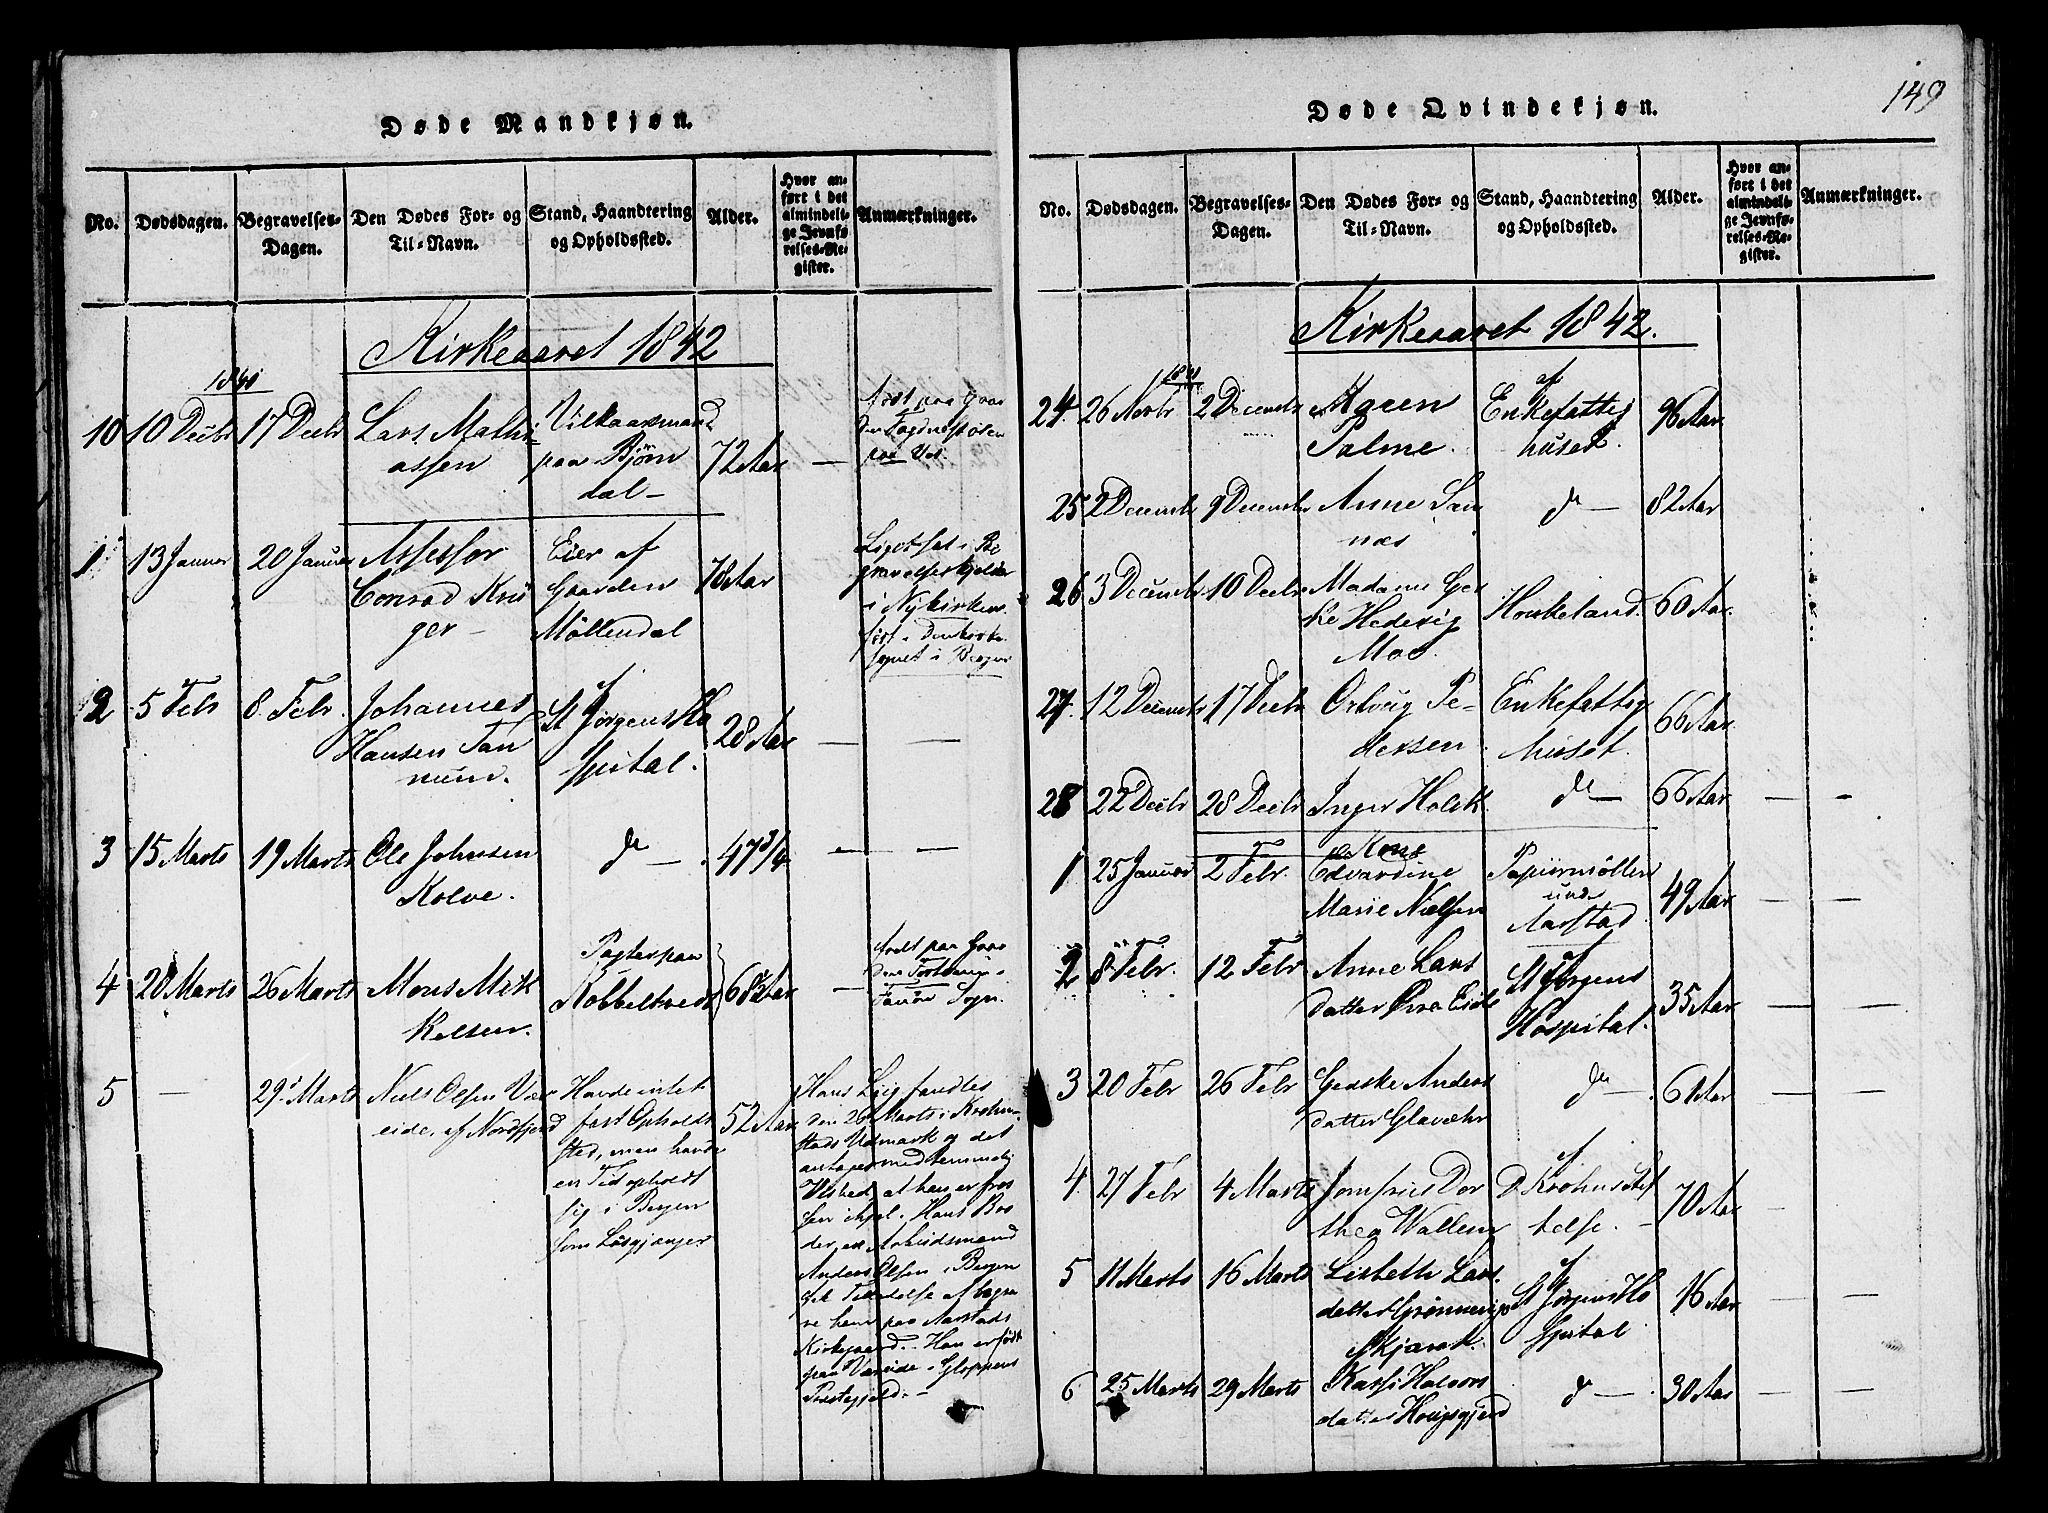 149
Døde Mandkjøn.
No.
Dødsdagen.
Begravelses-
Dagen.
Den Dødes For- og
Til-Navn.
Stand, Haandtering
og Opholdssted.
Alder.
Hvor an-
ført i det
almindeli-
ge Jevnfø-
relses-Re-
gister.
Anmærkninger.
Kirkeaaret 1842
1841
10 10 Decbr 17 Decbr
Lars Mathi
assen
Vilkaarsmand
paa Bjørn
dal -
72 Aar
—
født paa Gaar
den
paa Vos.
1 13 Januar 20 Januar
Assessor
Conrad Krü
ger -
Eier af
Gaarden
Møllendal
78 Aar
Liget sat i Be
gravelseskjelder
i Nykirken.
født i Domkirke
sognet i Bergen
2 5 Febr 8 Febr.
Johannes
Hansen Tan
num.
St Jørgens Ho
spital.
28 Aar
— —
3 15 Marts 19 Marts
Ole Johnsen
Kolve.
do —
47 3/4
— —
4 20 Marts 26 Marts
Mons Mik
kelsen.
Pagter paa
Kobbeltvedt
68 1/2 Aar
—
født paa Gaar
den
Sogn.
5 — 29 Marts
Niels Olsen Vær
eide, af Nordfjord
Havde intet
fast Opholds
sted, men havde
en Tid opholdt
sig i Bergen
som Løsgjænger
52 Aar
Hans Liig fandtes
den 26 Marts i Krohn-
stads Udmark og det
antages med temmelig
Vished, at han er fros
sen ihjel. Hans Bro
der, en Arbeidsmand
Anders Olsen i Bergen
fik Tilladelse at begra
ve ham paa Aarstads
Kirkegaard. Han er født
paa Væreide i Gloppens
Præstegjeld. -
Døde Qvindekjøn.
No.
Dødsdagen.
Begravelses-
Dagen.
Den Dødes For- og
Til-Navn.
Stand, Haandtering
og Opholdssted.
Alder.
Hvor an-
ført i det
almindeli-
ge Jevnfø-
relses-Re-
gister.
Anmærkninger.
Kirkeaaret 1842.
1841
24. 26 Novbr 2 Decembr
Maren
Palme.
af
Enkefattig
huset.
96 Aar
25 2 Decembr 9 Decembr
Anne San
næs
do —
82 Aar
26 3 Decembr 10 Decbr
Madame Ger
ke Hedevig
Moe.
Houkeland.
60 Aar.
27. 12 Decembr 17 Decbr
Pe-
dersen.
Enkefattig
huset.
66 Aar.
28 22 Decbr 28 Decbr
Inger Holck
do —
66 Aar
— —
1 25 Januar 2 Febr.
Kone
Edvardine
Marie Nielsen
Papiirmøllen
und
Aarstad
49 Aar
— —
2 8 Febr. 12 Febr
Anne Lars
datter Øvre Eide
St Jørgens
Hospital.
35 Aar
— —
3 20 Febr 26 Febr
Gedske Anders
datter Glavær
do —
61 Aar
— —
4. 27 Febr 4 Marts
Jomfrue Dor
thea Wallem
af
D Krohns Stif
telse. -
70 Aar
—
5 11 Marts 16 Marts
Lisbeth Lars
datter
St Jørgens Ho
spital
16 Aar
— —
6 25 Marts 29 Marts
Kari Halvors
datter Hougsgjerd
do —
30 Aar
— —